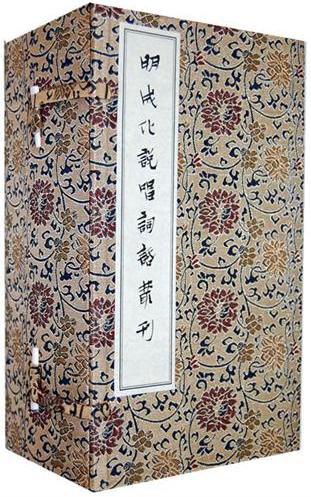 明成化說唱詞話叢刊